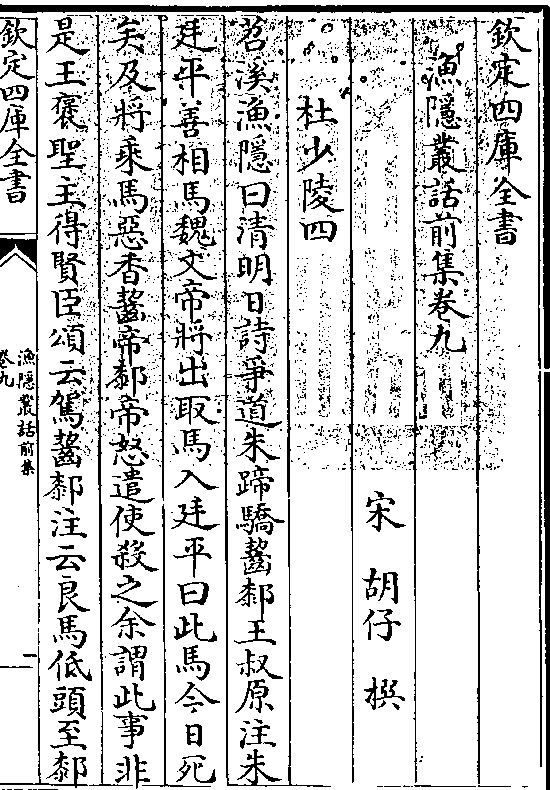 欽定四庫全書
漁隱叢話前集巻九
宋 胡仔 撰
杜少陵四
苕溪漁隱曰清明日詩爭道朱蹄驕齧厀王叔原注朱
廷平善相馬魏文帝將出取馬入廷平曰此馬今日死
矣及將乘馬惡香齧帝厀帝怒遣使殺之余謂此事非
是王褒聖主得賢臣頌云駕齧厀注云良馬低頭至厀
欽定四庫全書
漁隱叢話前集
卷九
一